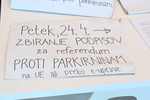 Petek, 24.4. →
ZBIRANJE PODPISOV
za referendum
PROTI PARKIRNINAM
na UE ali preko e-uprave